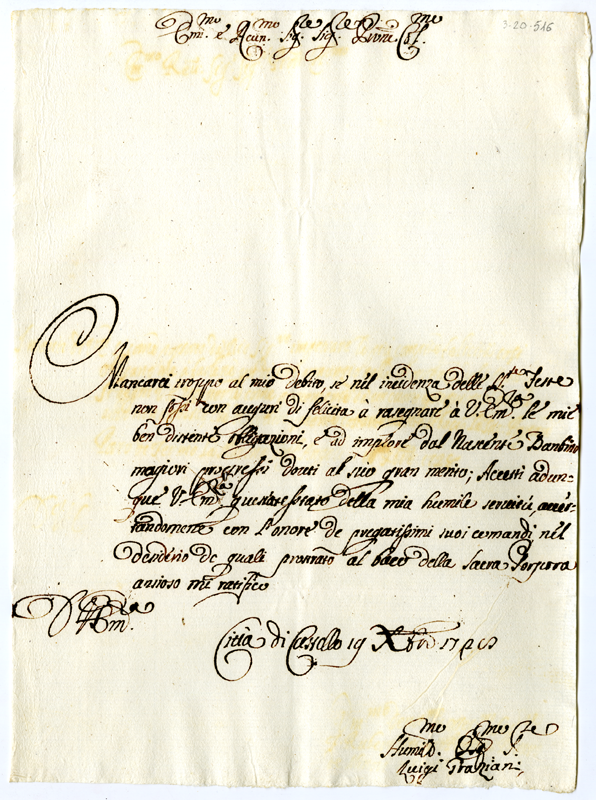 3-20-516
Em.mo e Rcu.mo Sig.re Sig.re Prone Col.mo
Mancarei troppo al mio debito, se nel incidenza delle S.te Feste
non fossi con auguri di felicità à rasegnare à V. Em.za le mie
ben distinte obligazioni, e ad implore dal Nascente Bambino
magiori progressi douti al suo gran merito; Accetti adun-
que V. Em.za questo attestato della mia humile servitù, accer-
tandomene con l'onore de pregatissimi suoi comandi nel
desiderio de quali prostrato al bacio della Sacra Porpora
ansioso mi ratifico
D V. Em.za
Città di Castello 19 Xbre 17
Humil.mo S.re
Luigi Graziani